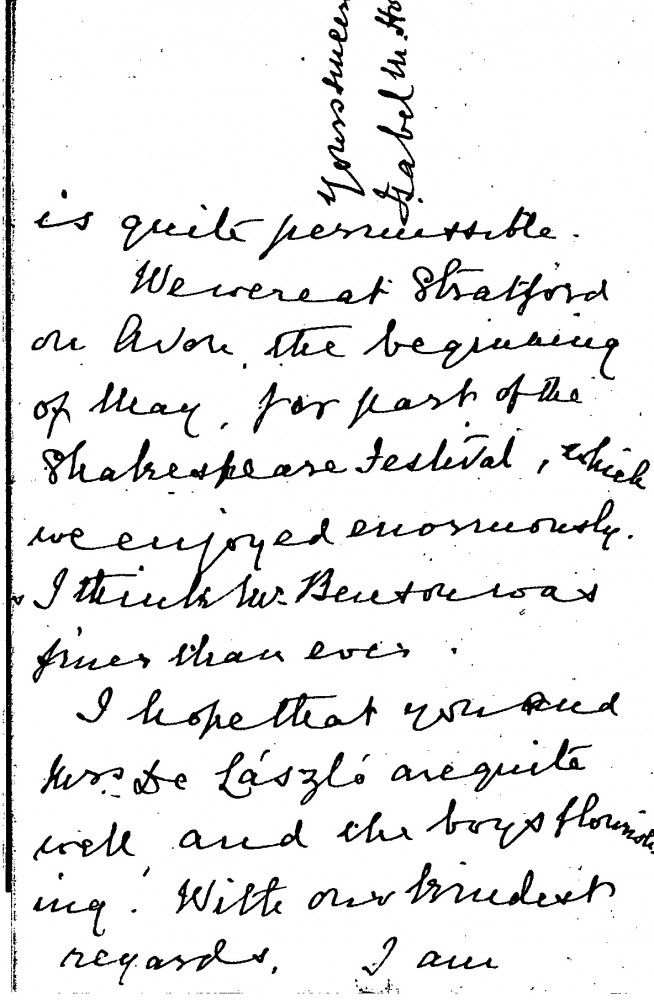 is quite permissible.
We were at Stratford
on Avon, the beginning
of May, for part of the
Shakespeare Festival, which
we enjoyed enormously.
I think Mr. Benson was
finer than ever.
I hope that you and
Mrs. De László are quite
well, and the boys flourish-
ing. With our kindest
regards, I am
Yours sincer
Isabel M. Ho